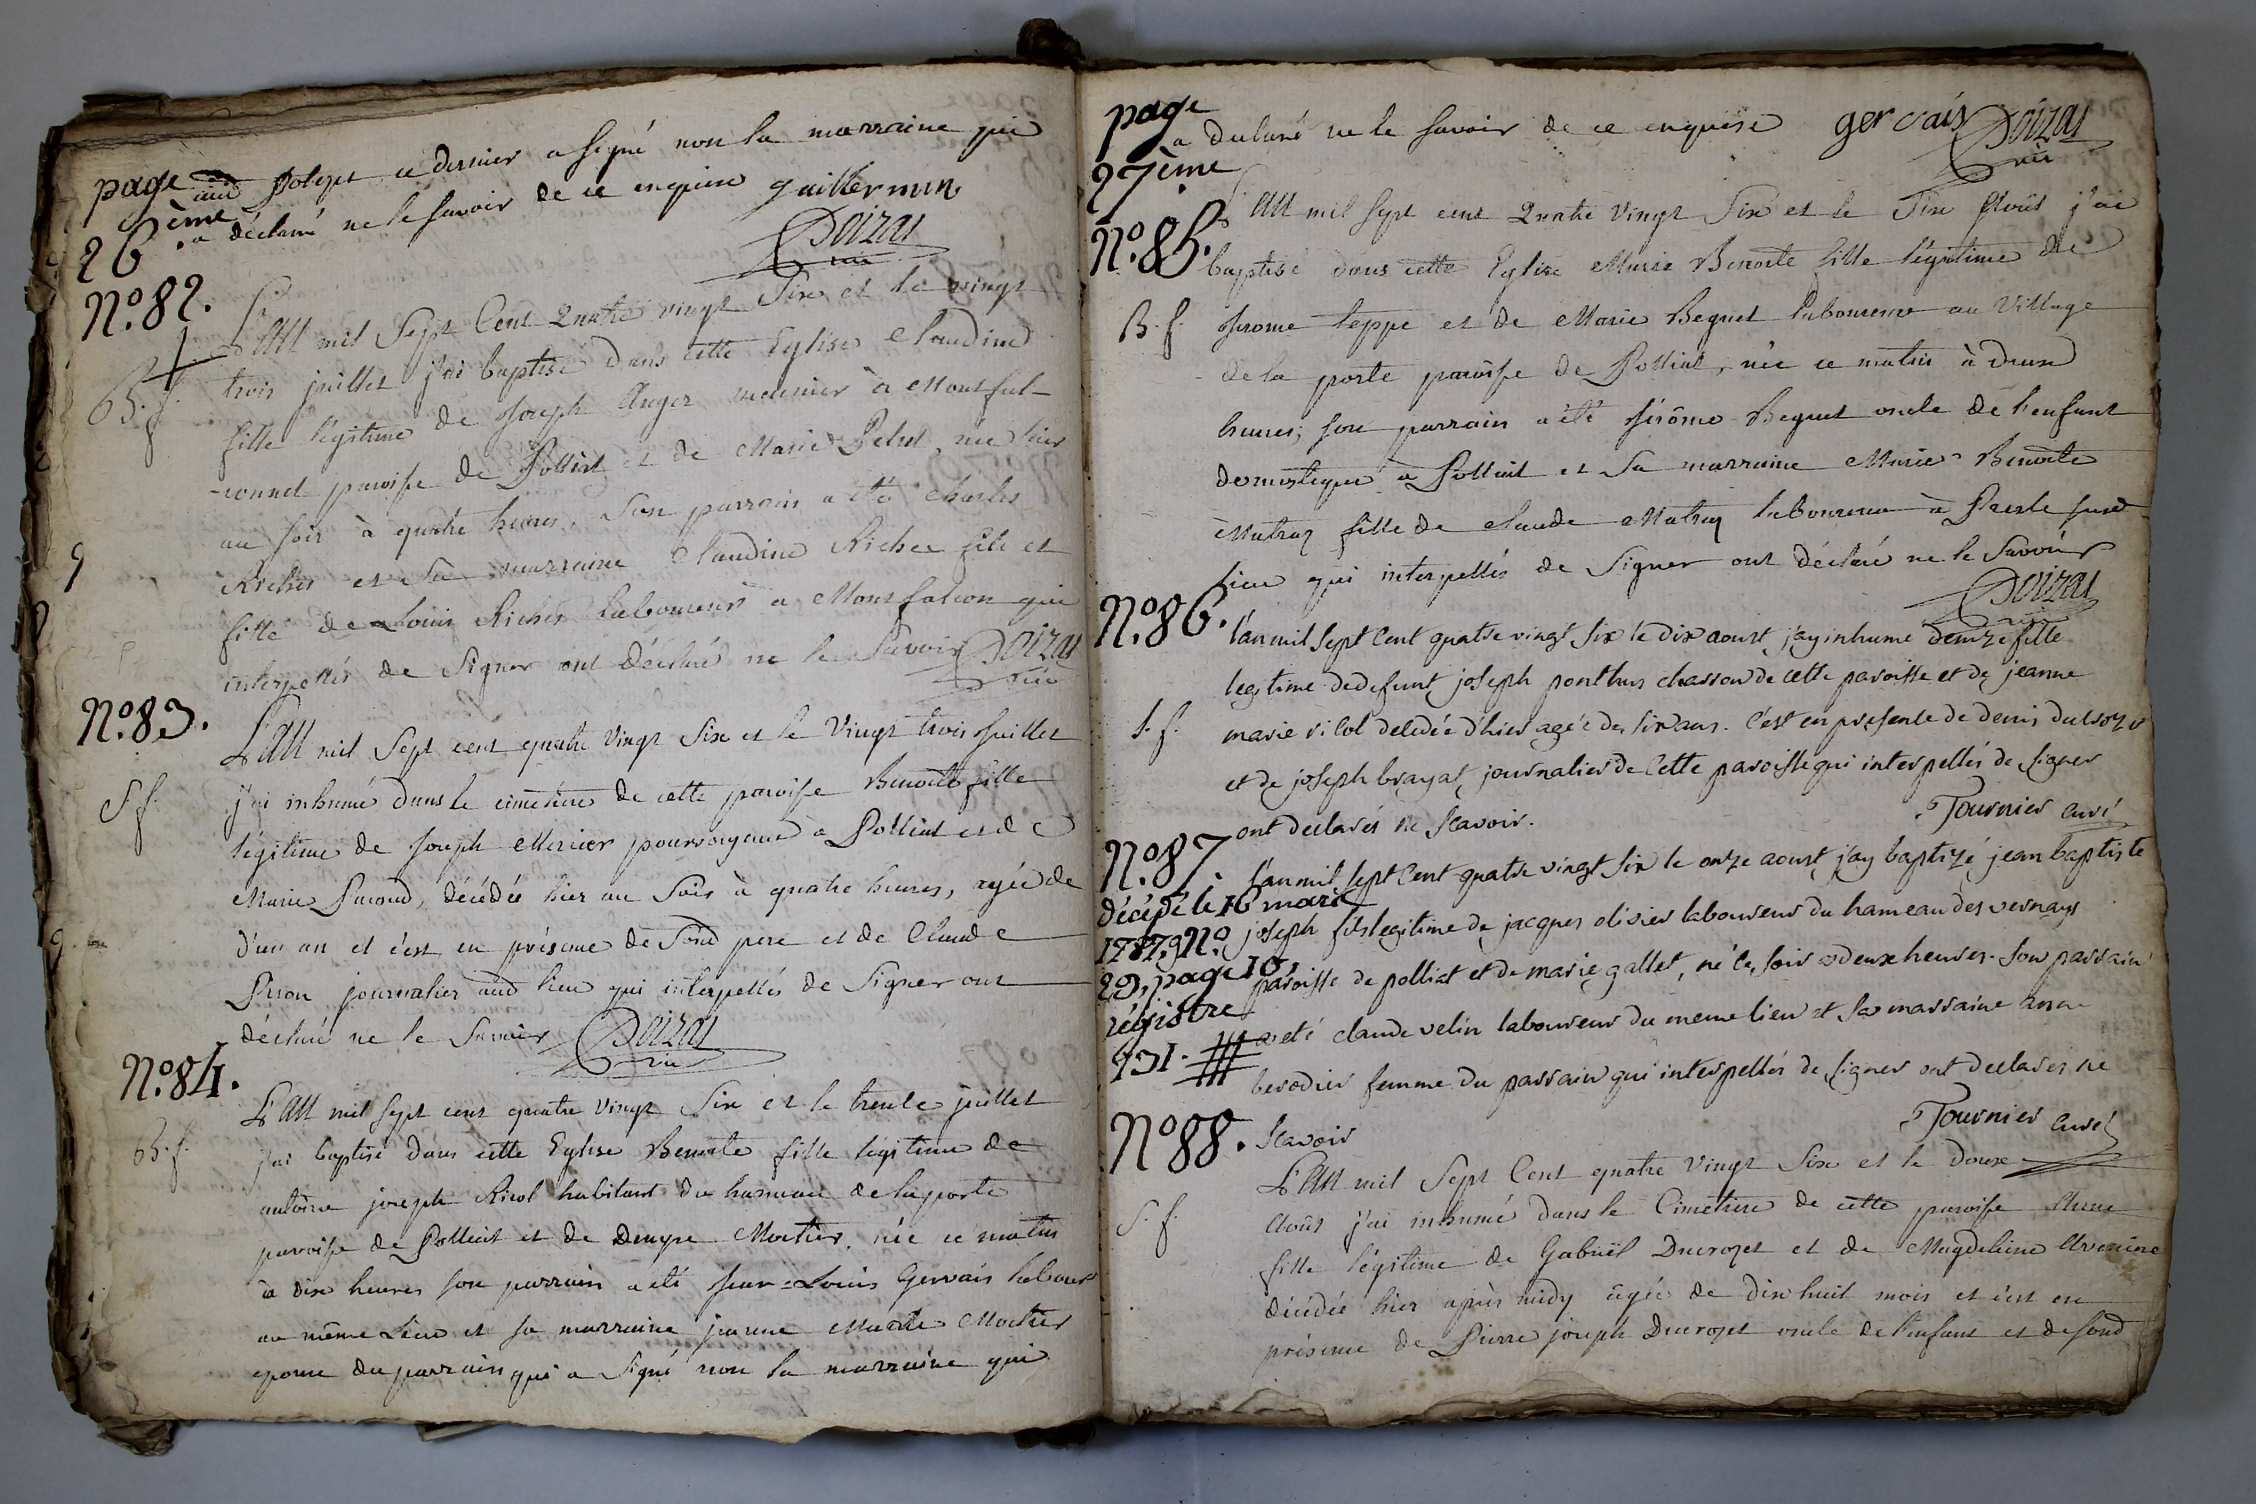 page 26ème.
aud Poleger ce dernier a signé non la marraine qui
a déclaré ne le savoir de ce enquise guillermin
Doizas
vic
N.º 82.
B. f.
L'An mil Sept Cent Quatre vingt Six et le vingt
trois juillet j'ai baptisé dans cette Eglise Claudine
fille légitime de Joseph Auger meunier à Montfal-
-connet paroisse de Polliat et de Marie Pelus, née hier
au soir à quatre heures, Son parrain a été Charles
Richer et Sa marraine Claudine Richer fils et
fille de Louis Richer laboureur à Montfalcon qui
interpellés de Signer ont déclaré ne le Savoir Doizas
vic
N.º 83.
S. f.
L'An mil Sept cent quatre vingt Six et le vingt trois Juillet
j'ai inhumé dans le cimetiere de cette paroisse Benoite fille
légitime de Joseph Mercier pourvoyeur à Polliat et de
Marie Pacoud, décédée hier au Soir à quatre heures, agée de
d'un an et c'est en présence de Sond pere et de Claude
Pison journalier aud lieu qui interpellés de Signer ont
déclaré ne le Savoir Doizas
vic
N.º 84.
B. f.
L'An mil sept cent quatre vingt Six et le trente juillet
j'ai baptisé dans cette Eglise Benoite fille légitime de
antoine joseph Ricol habitant du hameau de la porte
paroisse de Polliat et de Denyse Mortier, née ce matin
à dix heures son parrain a été Jean-Louis Gervais labour
au même Lieu et sa marraine jeanne Marie Mortier
epouse du parrain qui a Signé non la marraine qui
page 27ème
a déclaré ne le savoir de ce enquise gervais Doizas
vic
N.º 85.
B. f.
L'An mil sept cent Quatre vingt Six et le Six Août j'ai
baptisé dans cette Eglise Marie Benoite fille légitime de
Jerome teppe et de Marie Beguet laboureur au Village
de la porte paroisse de Polliat, née ce matin à deux
heures; son parrain a été Jérôme Beguet oncle de l'enfant
domestique a Polliat et Sa marraine Marie Benoite
Matray fille de Claude Matray laboureur à Presle susd
Lieu qui interpellés de Signer ont déclaré ne le Savoir
Doizas
vic
N.º 86.
S. f.
l'an mil sept Cent quatre vingt six le dix aoust j'ay inhume denize fille
legitime de defunt joseph ponthus charron de cette paroisse et de jeanne
marie ricol decedée d'hier agée de six ans. C'est en presence de denis ducroze
et de joseph brayat journalier de Cette paroisse qui interpellés de signer
ont declarés ne Scavoir. Tournier curé
N.º 87
décédé le 16 mars
1787, N.º
29, page 10,
régistre
131.
l'an mil sept Cent quatre vingt six le onze aoust j'ay baptizé jean baptiste
joseph fils legitime de jacques olivier laboureur du hameau des vernays
paroisse de polliat et de marie gallet, né ce soir a deux heures. Son parrain
a eté claude velin laboureur du meme lieu et Sa marraine anne
berodier femme du parrain qui interpellés de signer ont declarés ne
Scavoir Tournier curé
N.º 88.
S. f.
L'An mil Sept Cent quatre Vingt Six et le douze
Août j'ai inhumé dans le Cimetiere de cette paroisse Anne
fille légitime de Gabriël Ducrozet et de Magdeleine
décédée hier après midy âgée de dix huit mois et c'est en
présence de Pierre joseph Ducrozet oncle de l'enfant et de sond